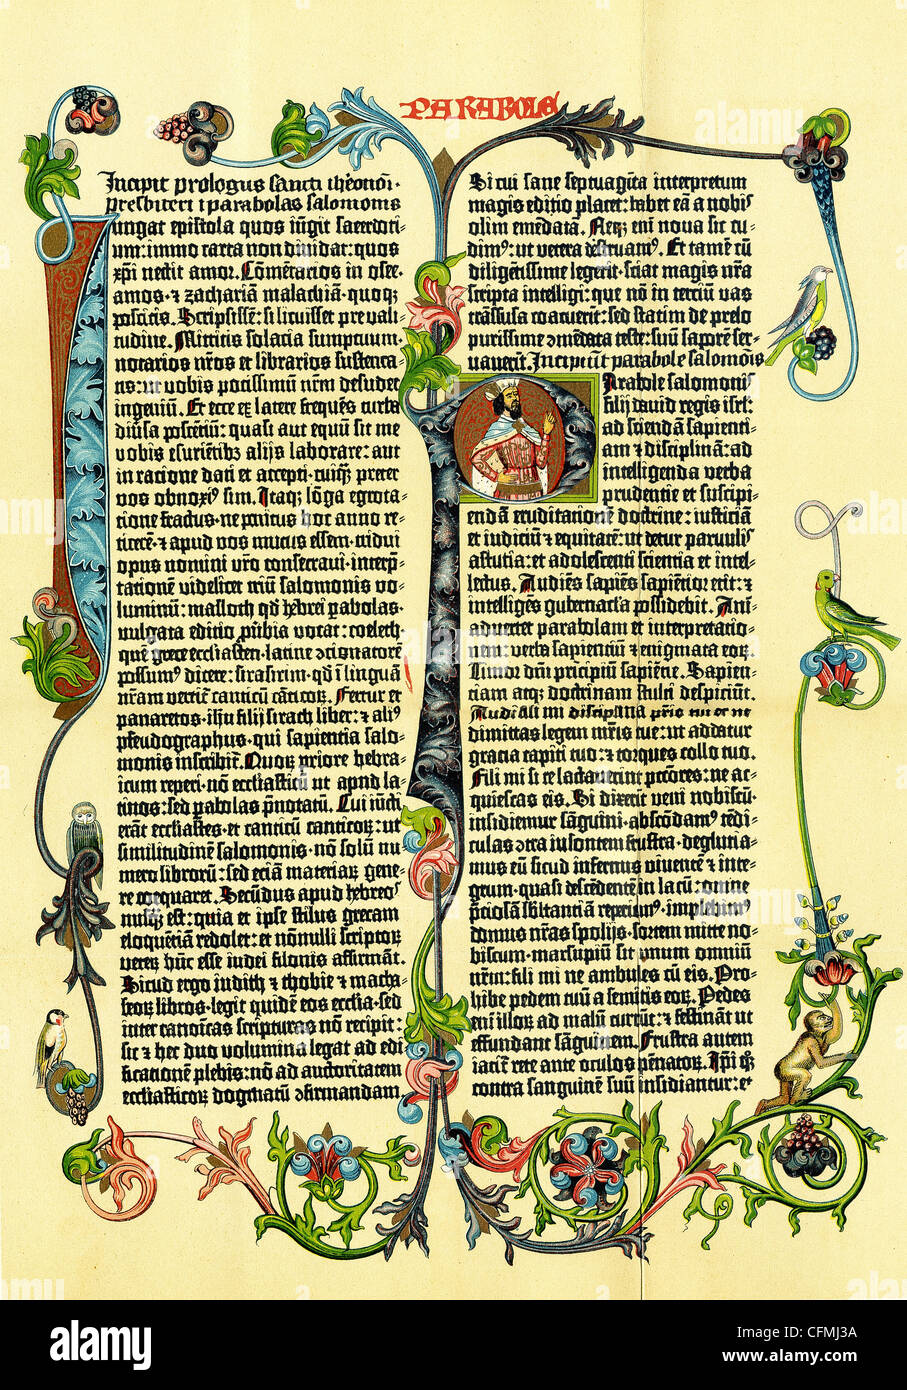 PARABOLE
Incipit prologus sancti iheronimi
presbiteri i parabolas salomonis
Iungat epistola quos iūgit sacerdoti-
um: immo carta non diuidat: quos
xp̄i nectit amor. Cōmētarios in osee-
amos· & zachariam malachiā· quoq;
poscitis. Scripsissē: si licuisset pre vali-
tudine. Mittitis solacia sumptuum·
notarios nr̄os et librarios sustenta-
tis: ut vobis potissimū nr̄m desudet
ingeniū. Et ecce ex latere frequēs turba
diūsa poscētiū: quasi aut equū sit me
vobis esurientib; alijs laborare: aut
in ratione dati et accepti· cuiq; preter
vos obnoxi⁹ sim. Itaq; lōga egrota-
tione fractus· ne penitus hoc anno re-
ticerē· & apud vos mutus essem· tridui
opus nomini vr̄o consecraui· interp-
tationē videlicet triū salomonis vo-
luminū: masloth qd̄ hebrei pabolas·
vulgata editio pūbia vocat: coeleth·
quē grece ecclesiasten· latine ↄcionatorē
possum⁹ dicere: sirasirim· qd̄ ī linguā
nr̄am vertitr canticū cāticor;. Fertur et
panaretos· ihu filij sirach liber: & ali⁹
pseudographus· qui sapientia salo-
monis inscribitr̄. Quor; priore hebra-
icum reperi· nō ecclesiasticū ut apud la-
tinos: sed pabolas p̄notatū. Cui iūcti
erāt ecclesiastes· et canticū canticor;: ut
similitudinē salomonis· nō solū nu-
mero libroru: sed eciā materiar; gene-
re coequaret. Secūdus apud hebreos
nusq; est: quia et ipse stilus grecam
eloquētiā redolet: et nōnulli scriptor;
veter; hūc esse iudei filonis affirmāt.
Sicud ergo iudith & thobie & macha-
beor; libros· legit quidē eos ecclesia· sed
inter canoīcas scripturas nō recipit:
sic & hec duo volumina legat ad edi-
ficationē plebis: nō ad auctoritatem
ecclesiasticor; dogmatū ↄfirmandam.
Si cui sane septuagīta interpretum
magis editio placet: habet eā a nobis
olim emēdatā. Neq; enī noua sic cu-
dim⁹: ut vetera destruam⁹. Et tamē cū
diligētissime legerit· sciat magis nr̄a
scripta intelligi: que nō in terciū vas
trāsfusa coacuerit: sed statim de prelo
purissime ↄmēdata teste: suū saporē ser-
uauerit. Incipiūt parabole salomōis
Parabole salomonis
filij dauid regis isrl̄:
ad sciendā sapienti-
am & disciplinā: ad
intelligenda verba
prudentie et suscipi-
endā eruditationē doctrine: iusticiā
et iudiciū & equitatē: ut detur paruulis
astutia: et adolescenti scientia et intel-
lectus. Audiēs sapiēs sapientior erit: &
intelligēs gubernacl'a possidebit. Ani-
aduertet parabolam et interpretatio-
nem: verba sapientiū & enigmata eor;.
Timor dn̄i principiū sapiētie. Sapien-
tiam atq; doctrinam stulti despiciūt.
Audi fili mi
dimittas legem mr̄is tue: ut addatur
gracia capiti tuo: & torques collo tuo.
Fili mi si te lactauerint pctōres: ne ac-
quiescas eis. Si dixerīt veni nobiscū·
insidiemur sāguini· abscōdam⁹ tēdi-
culas ↄtra īsontem frustra· degluciā-
mus eū sicud infernus viuentē & inte-
grum· quasi descēdētē in lacū: omnē
p̄ciosā substantiā reperiem⁹· implebim⁹
domus nr̄as spolijs· sortem mitte no-
biscum· marsupiū sit unum omniū
nr̄m: fili mi ne ambules cū eis. Pro-
hibe pedem tuū a semitis eor;. Pedes
enī illor; ad malū currūt: & festināt ut
effundant sāguinem. Frustra autem
iacitr̄ rete ante oculos pēnator;. Ipi q;
contra sanguinē suū insidiantur: et
alamy
Image ID: CFMJ3A
www.alamy.com